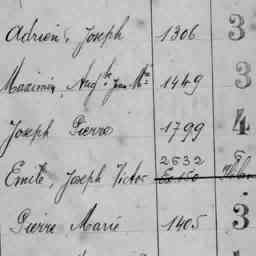 Adrien, Joseph 1306 3
Maximin, Aug.te Jean-M.ie 1449 3
Joseph Pierre 1799 4
2632 5
Emile, Joseph Victor
Pierre Marie 1405 3